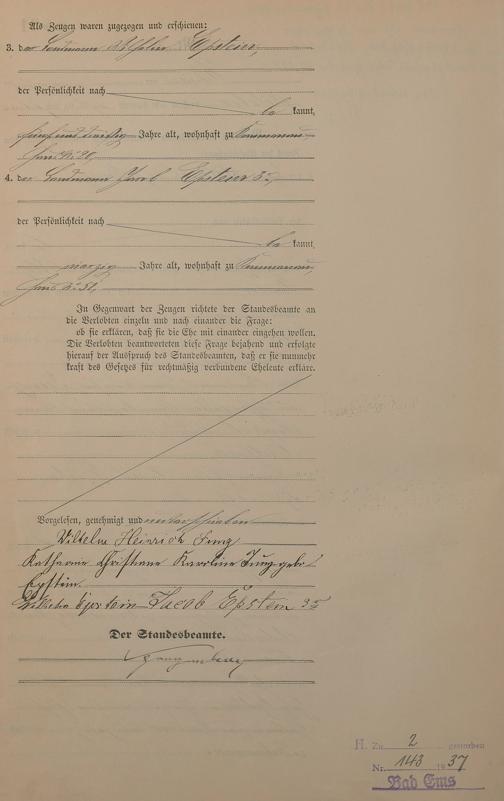 Als Zeugen waren zugezogen und erschienen:
3. der Landmann Wilhelm Epstein,
der Persönlichkeit nach
be kannt,
fünfunddreißig Jahre alt, wohnhaft zu
Haus No 20,
4. der Landmann Jacob Epstein 3r,
der Persönlichkeit nach
be kannt,
vierzig Jahre alt, wohnhaft zu
Haus No 31,
In Gegenwart der Zeugen richtete der Standesbeamte an
die Verlobten einzeln und nach einander die Frage:
ob sie erklären, daß sie die Ehe mit einander eingehen wollen.
Die Verlobten beantworteten diese Frage bejahend und erfolgte
hierauf der Ausspruch des Standesbeamten, daß er sie nunmehr
kraft des Gesetzes für rechtmäßig verbundene Eheleute erkläre.
Vorgelesen, genehmigt und unterschrieben
Wilhelm Heinrich Jung
Katharina Christiane Karoline Jung geb.
Epstein.
Wilhelm Epstein Jacob Epstein 3r
Der Standesbeamte.
H. Zu 2 gestorben
Nr. 143 1937
Bad Ems